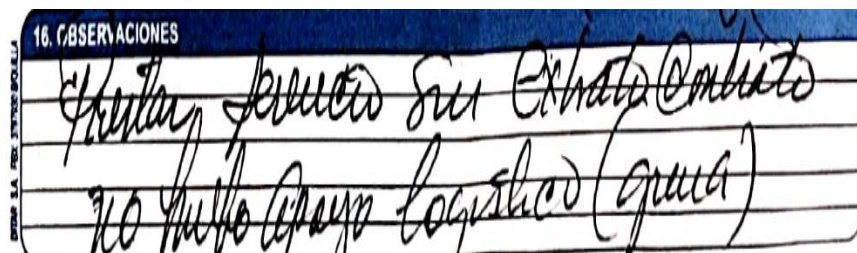 16. OBSERVACIONES
Prestar servicio Sin Extrato Contrato
no hubo apoyo logistico (grua)